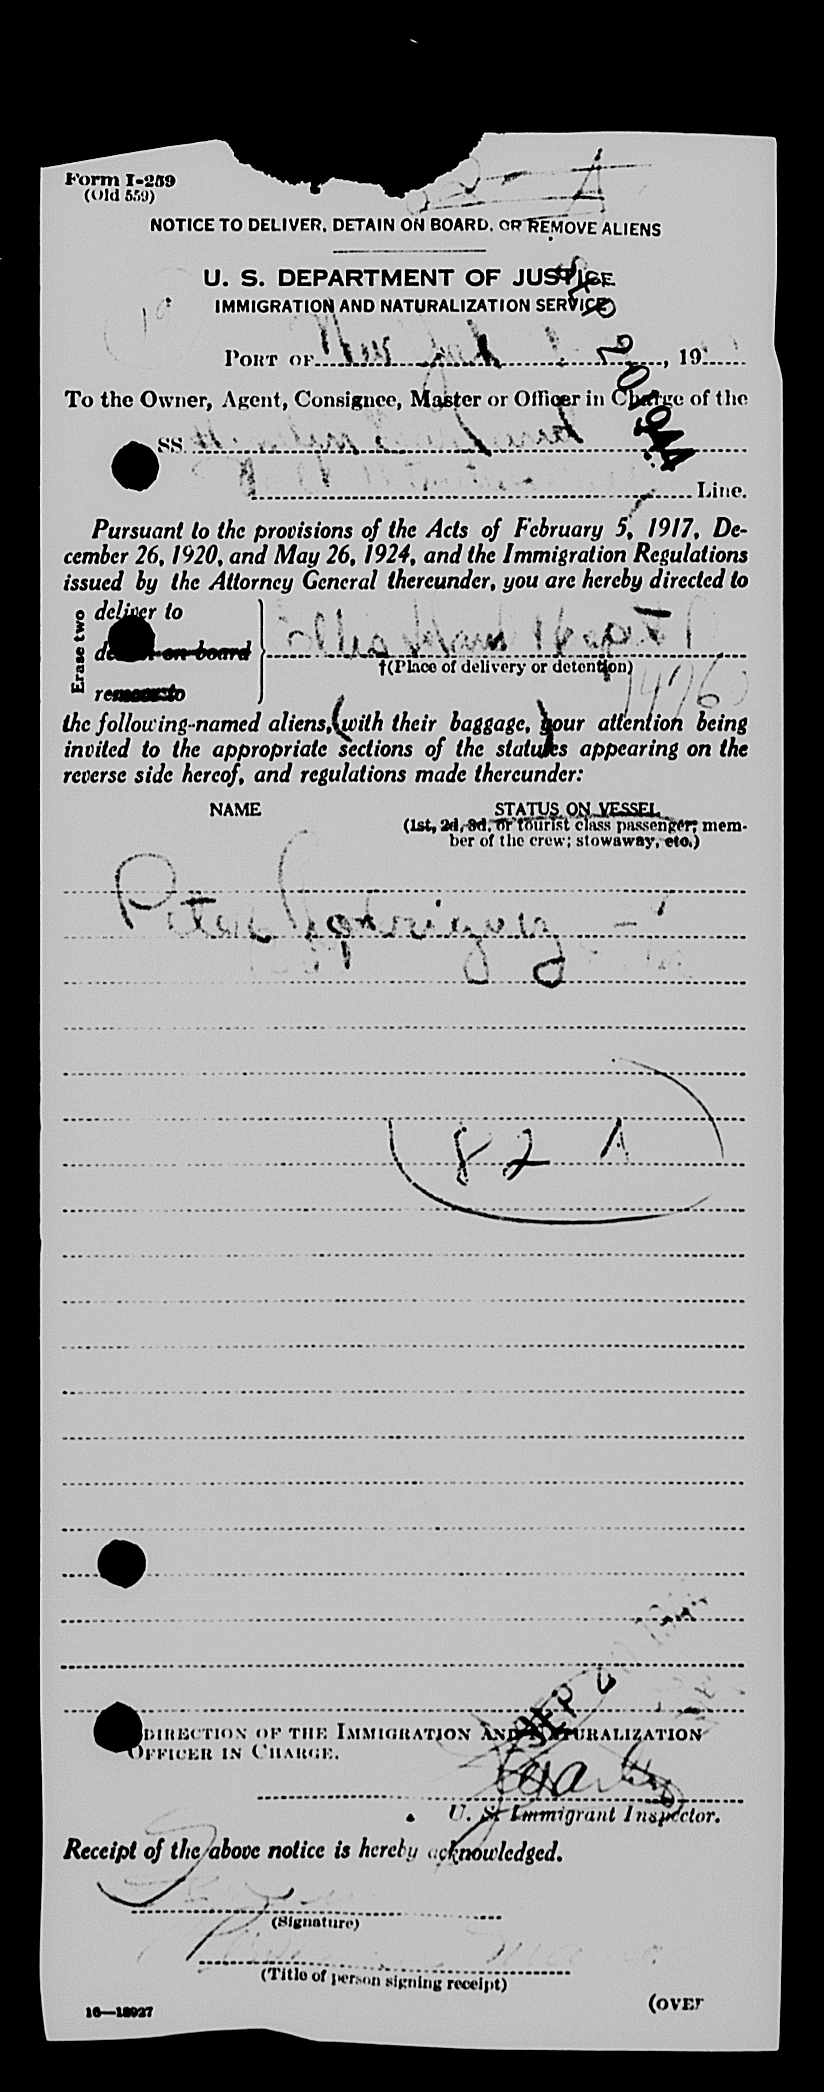 Form I-259
(Old 559)
NOTICE TO DELIVER, DETAIN ON BOARD, OR REMOVE ALIENS
U. S. DEPARTMENT OF JUSTICE
IMMIGRATION AND NATURALIZATION SERVICE
PORT OF New York, 19
SEP 20 1944
To the Owner, Agent, Consignee, Master or Officer in Charge of the
SS.
Line.
Pursuant to the provisions of the Acts of February 5, 1917, De-
cember 26, 1920, and May 26, 1924, and the Immigration Regulations
issued by the Attorney General thereunder, you are hereby directed to
Erase two
deliver to
detain on board
remove to
Ellis Island Hospt
†(Place of delivery or detention)
the following-named aliens, (with their baggage, your attention being
invited to the appropriate sections of the statutes appearing on the
reverse side hereof, and regulations made thereunder:
NAME
STATUS ON VESSEL
(1st, 2d, 3d, or tourist class passenger; mem-
ber of the crew; stowaway, etc.)
Peter Rodriguez
82 A
SEP
DIRECTION OF THE IMMIGRATION AND NATURALIZATION
OFFICER IN CHARGE.
U. S. Immigrant Inspector.
Receipt of the above notice is hereby acknowledged.
(Signature)
(Title of person signing receipt)
16—18927
(OVER